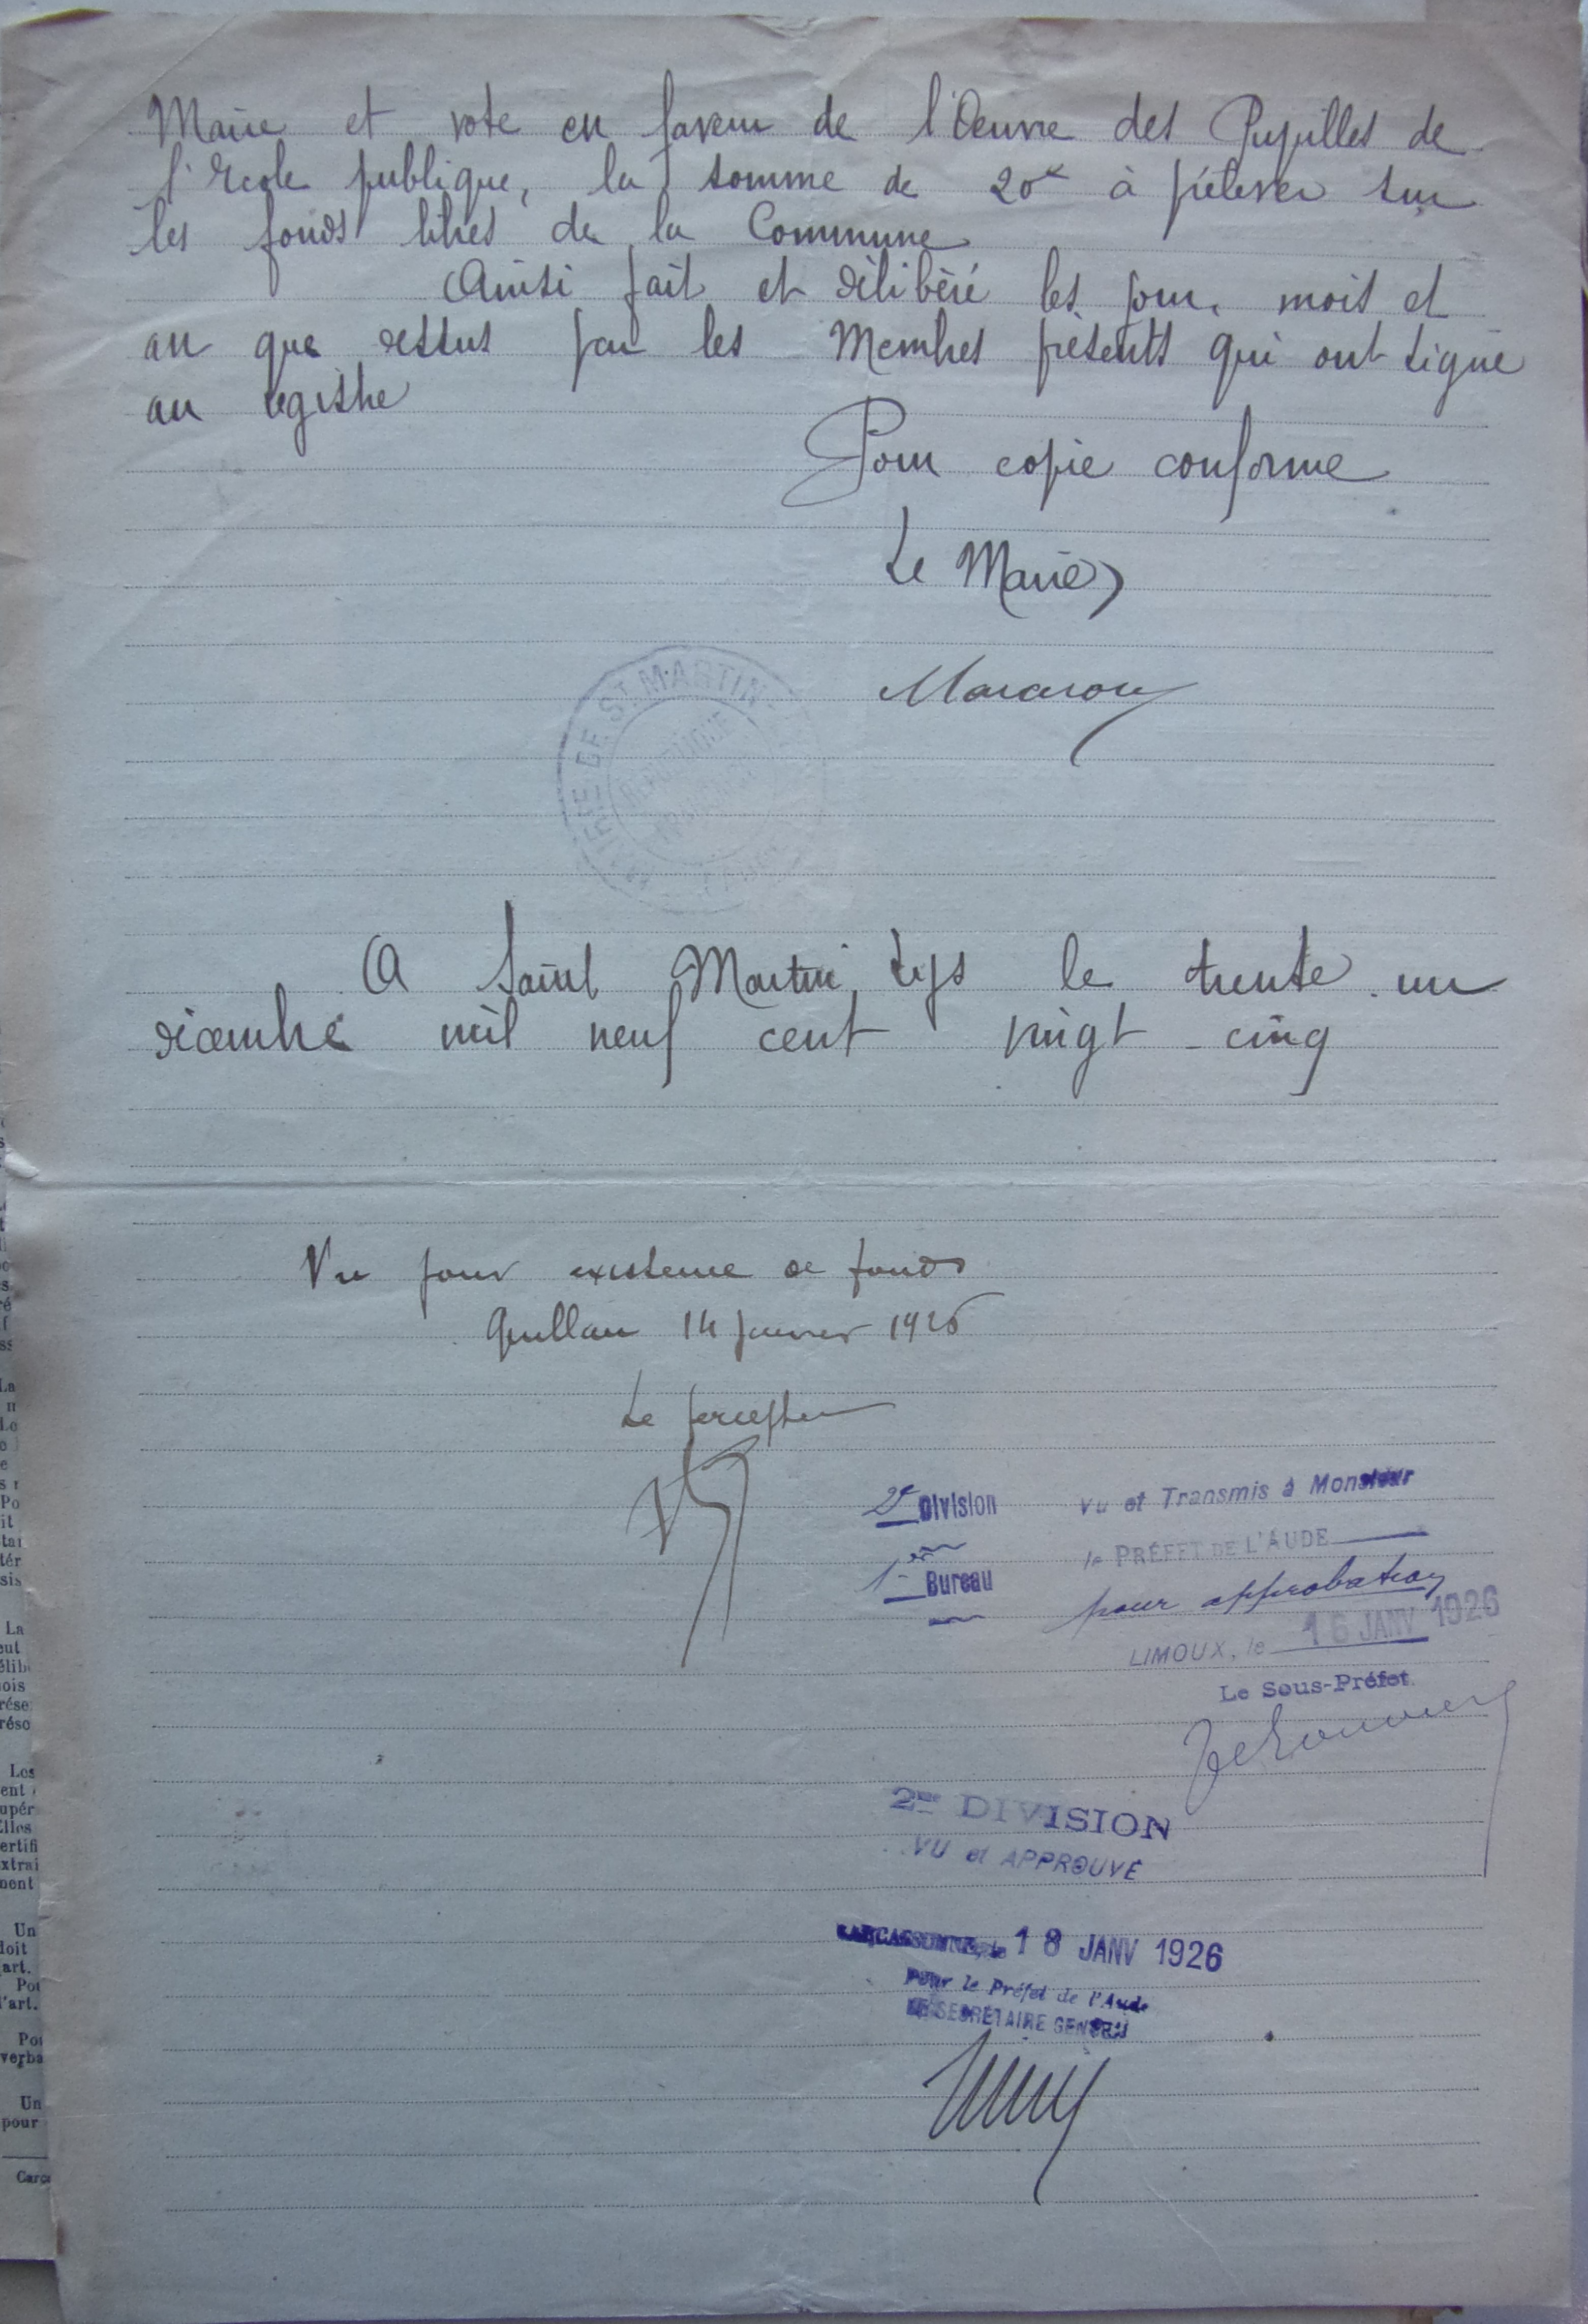 Maire et vote en faveur de l'Oeuvre des Pupilles de
l'Ecole publique, la somme de 20f à prélever sur
les fonds libres de la Commune
Ainsi fait et délibéré les jour, mois et
an que dessus par les Membres présents qui ont signé
au registre
Pour copie conforme
Le Maire,
MAIRIE DE ST MARTIN
REPUBLIQUE
A Saint Martin Lys le trente un
décembre mil neuf cent vingt-cinq
Vu pour existence de fonds
Quillan 14 janvier 1926
Le percepteur
2e Division Vu et Transmis à Monsieur
le PRÉFET DE L'AUDE
1er Bureau pour approbation
LIMOUX, le 16 JANV 1926
Le Sous-Préfet
2me DIVISION
VU et APPROUVÉ
CARCASSONNE, le 18 JANV 1926
Pour le Préfet de l'Aude
LE SECRÉTAIRE GENERAL